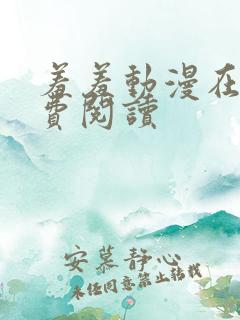 羞羞動漫在
費閱讀
安慕静心
未经同意禁止转载